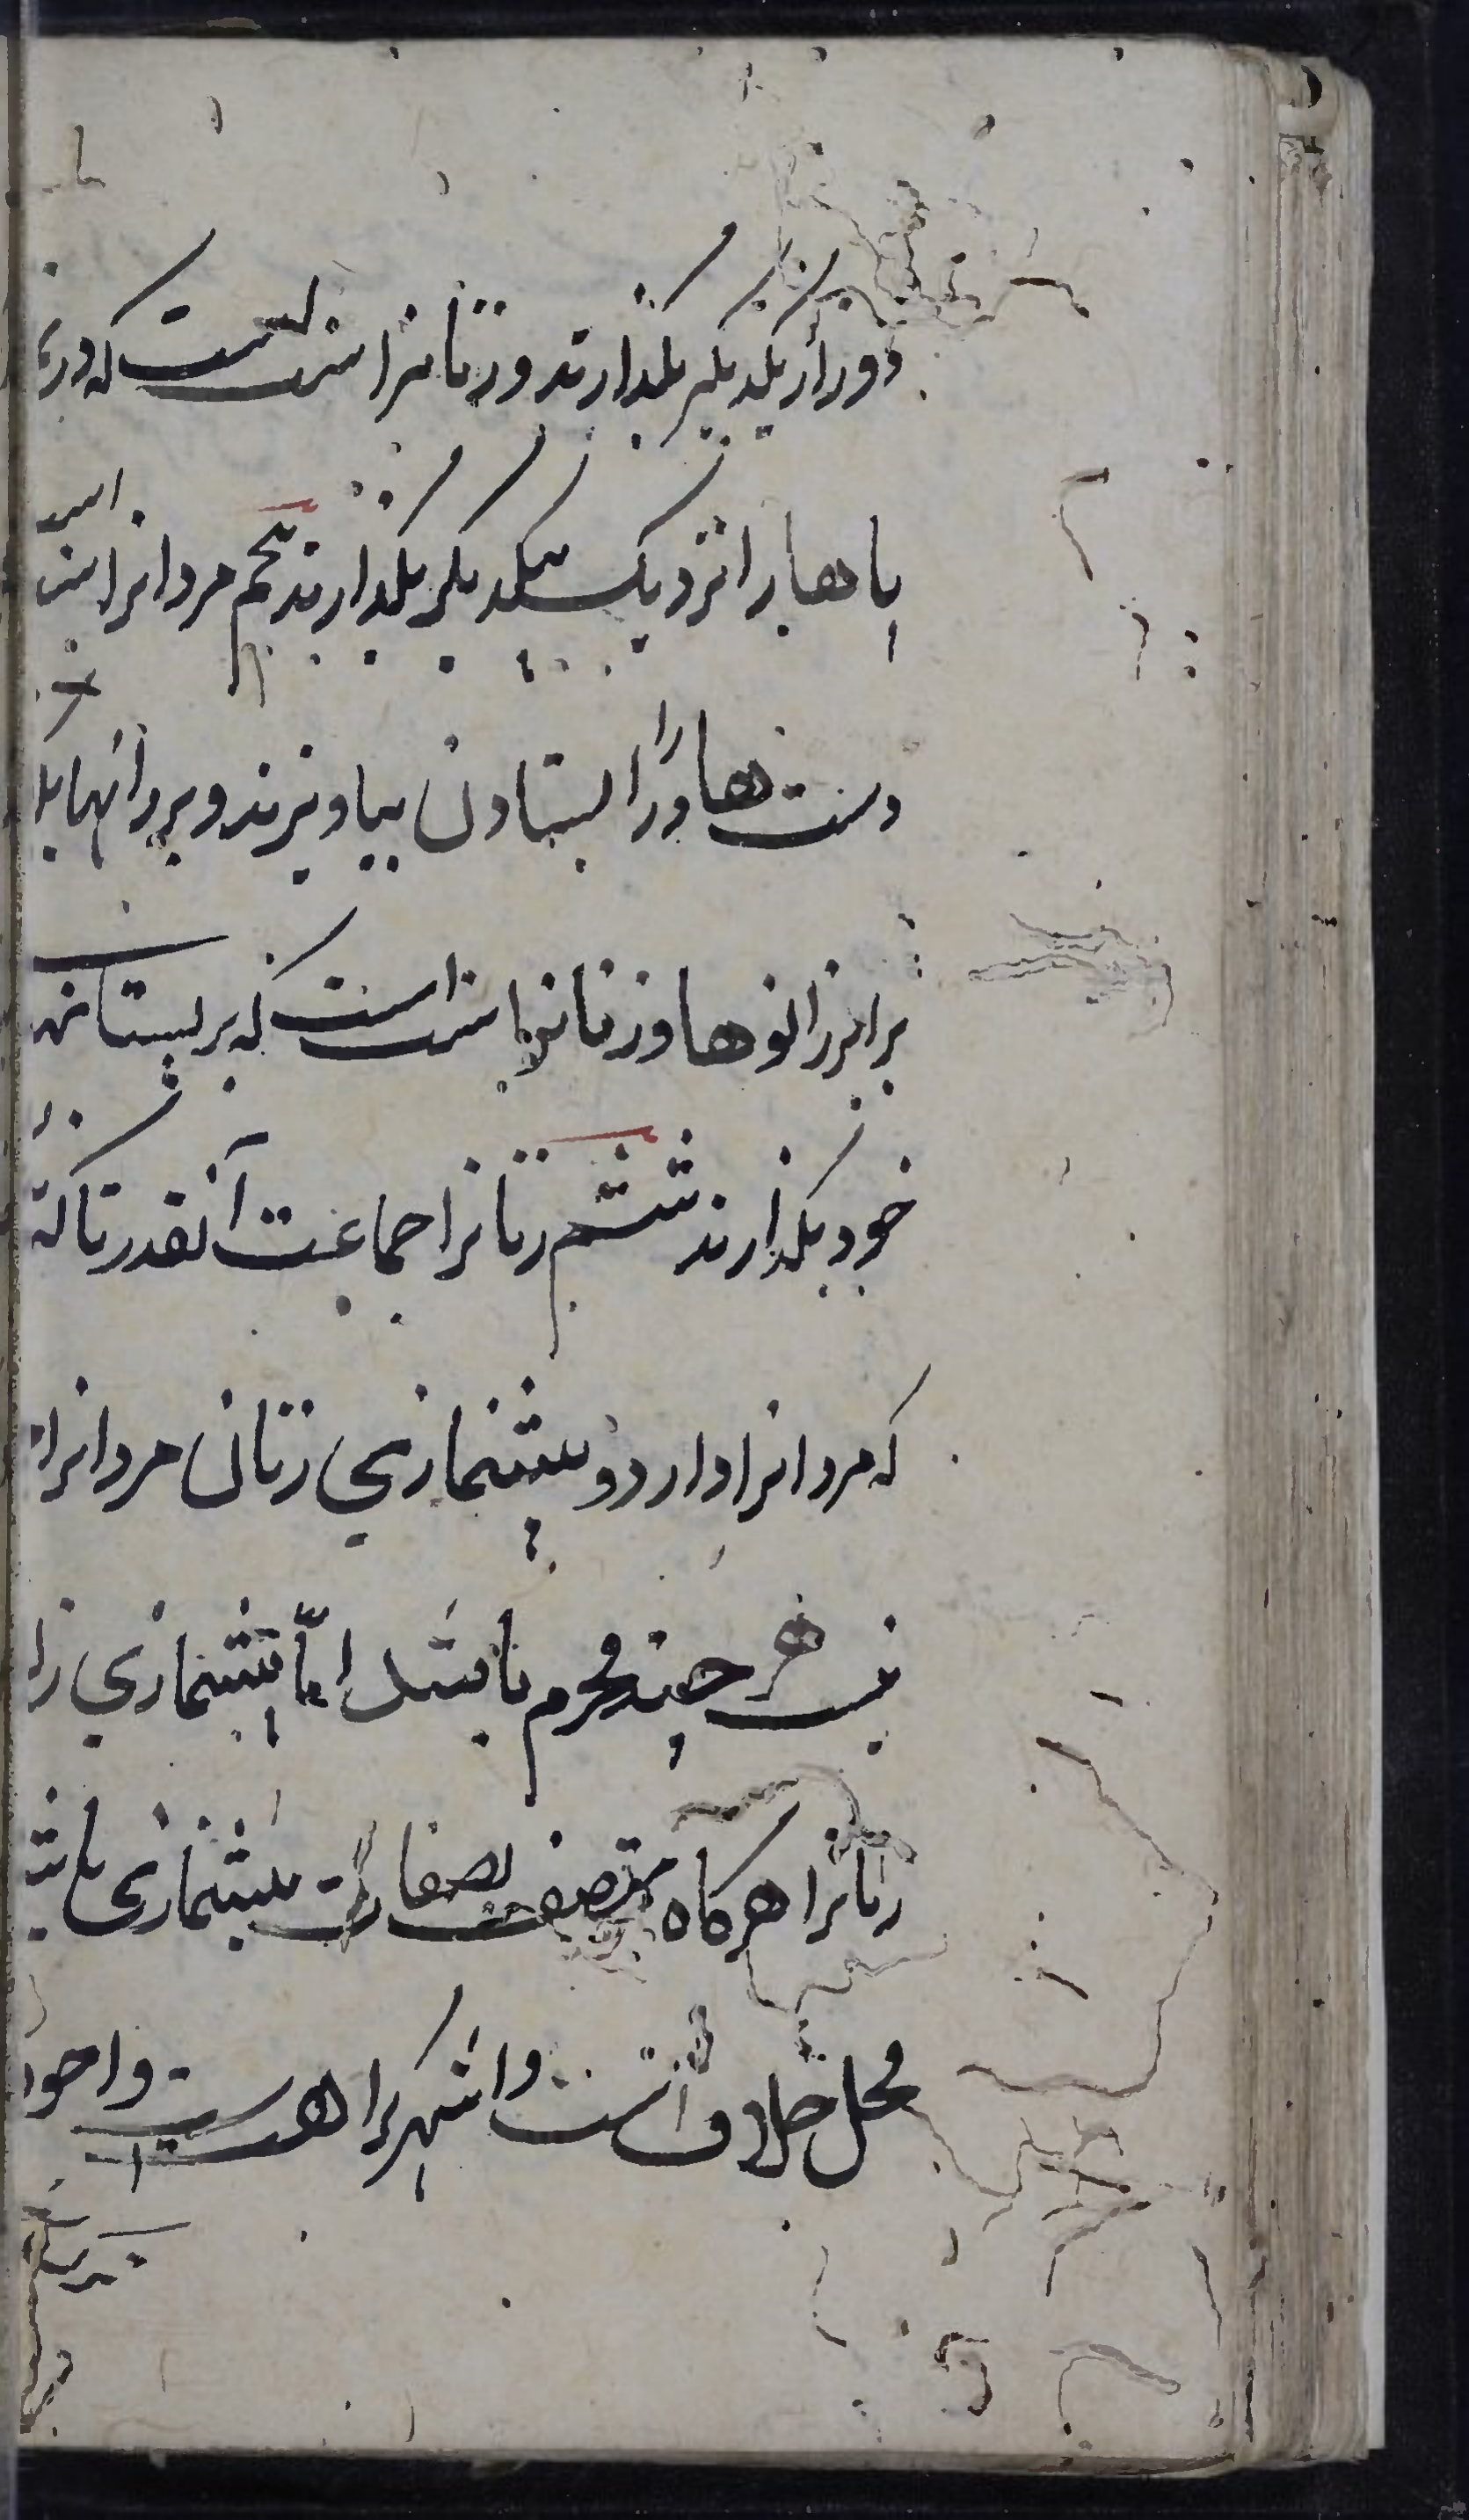 دور از یکدیکر بکذارند و زنانرا سنت است که در
پاها را نزدیک بیکدیکر بکذارند پنجم مردانرا سنت است
دست ها را در ایستادن بیاویزند و بر رانها
برابر زانوها و زنانرا سنت است که بر پستانهای
خود بکذارند ششم زنانرا جماعت آنقدر تاکید
که مردانرا دارد و پیشنمازی زنان مردانرا
نیست هر چند محرم باشند اما پیشنمازی زن
زنانرا هرکاه متصف بصفات پیشنمازی باشد
محل خلاف است و اشهر کراهت است و احوط